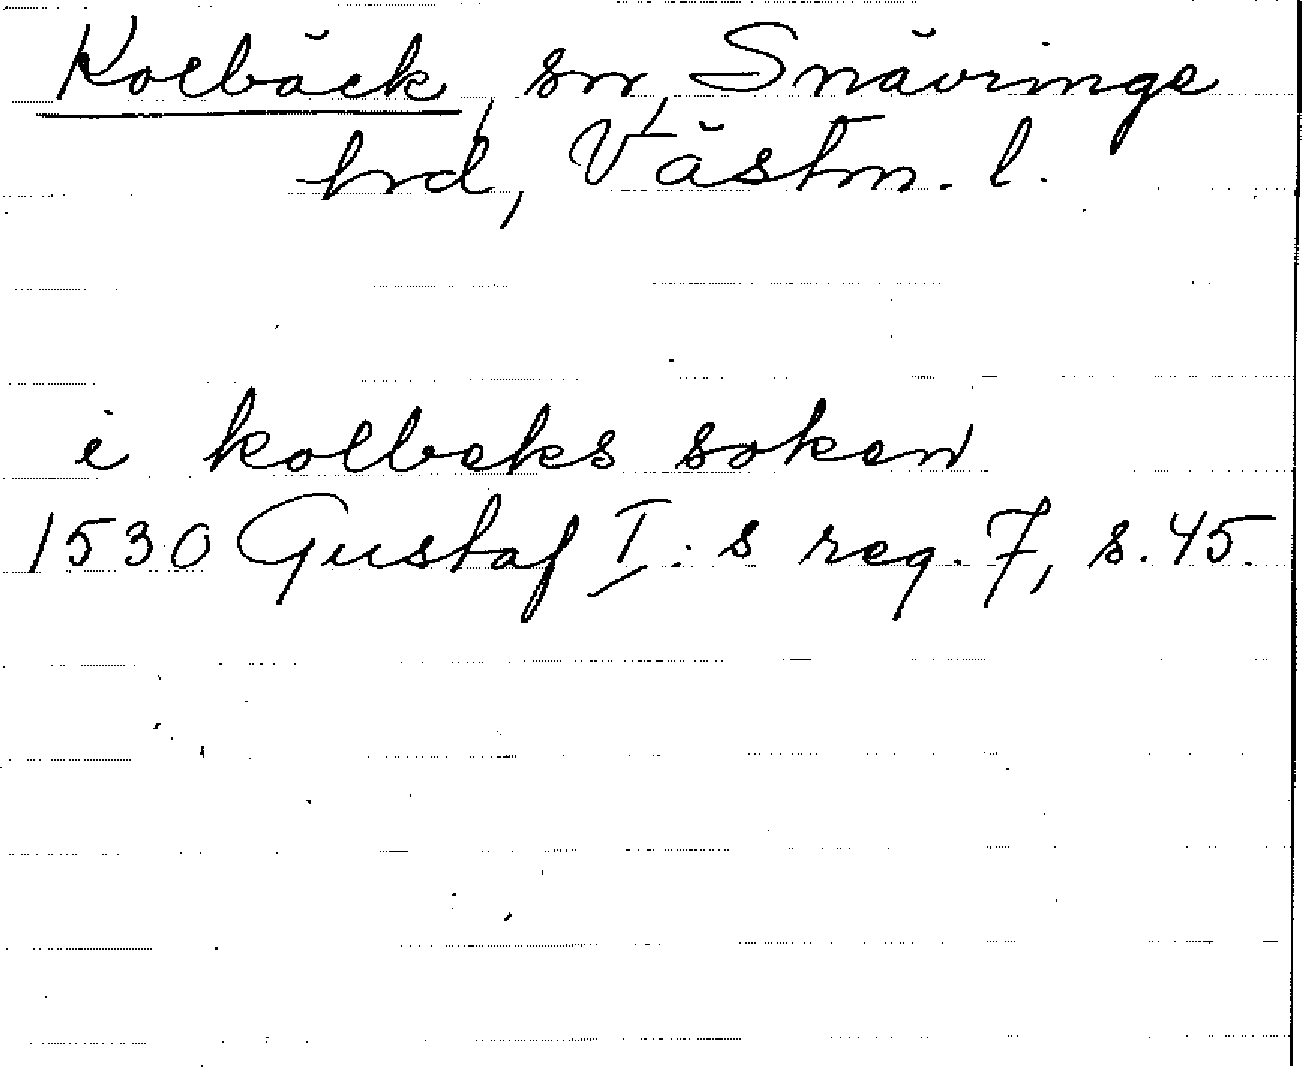 Kolbäck, sn, Snävringe
hrd, Västm. l.
i kolbeks soken
1530 Gustaf I:s reg. 7, s. 45.